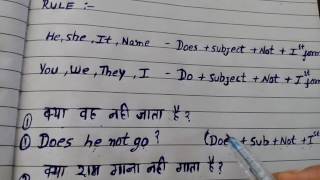 RULE :-
He, she, It, Name - Does + Subject + Not + Ist form
You, We, They, I - Do + Subject + Not + Ist form
① क्या वह नही जाता है?
① Does he not go? (Does + Sub + Not + Ist
② क्या राम गाना नही गाता है?